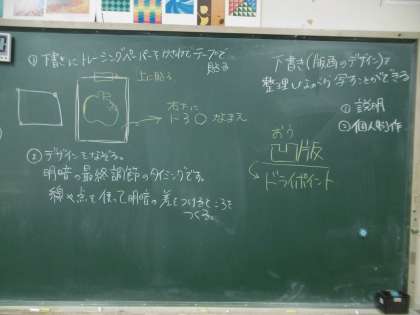 ① 下書きにトレーシングペーパーをかさねてテープで貼る
上に貼る
右下に
トヨ○ なまえ
② デザインをなぞる。
明暗の最終調節のタイミングです。
線や点を使って明暗の差をつけるところを
つくる。
下書き(版画のデザイン)を
整理しながら写すことができる
① 説明
② 個人制作
おう
凹版
ドライポイント